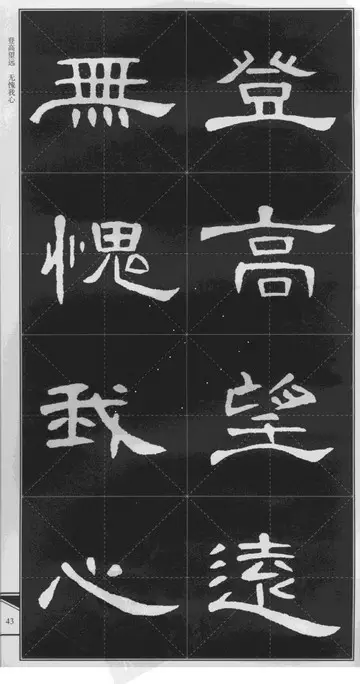 登高望遠
無愧我心
登高望远 无愧我心
43